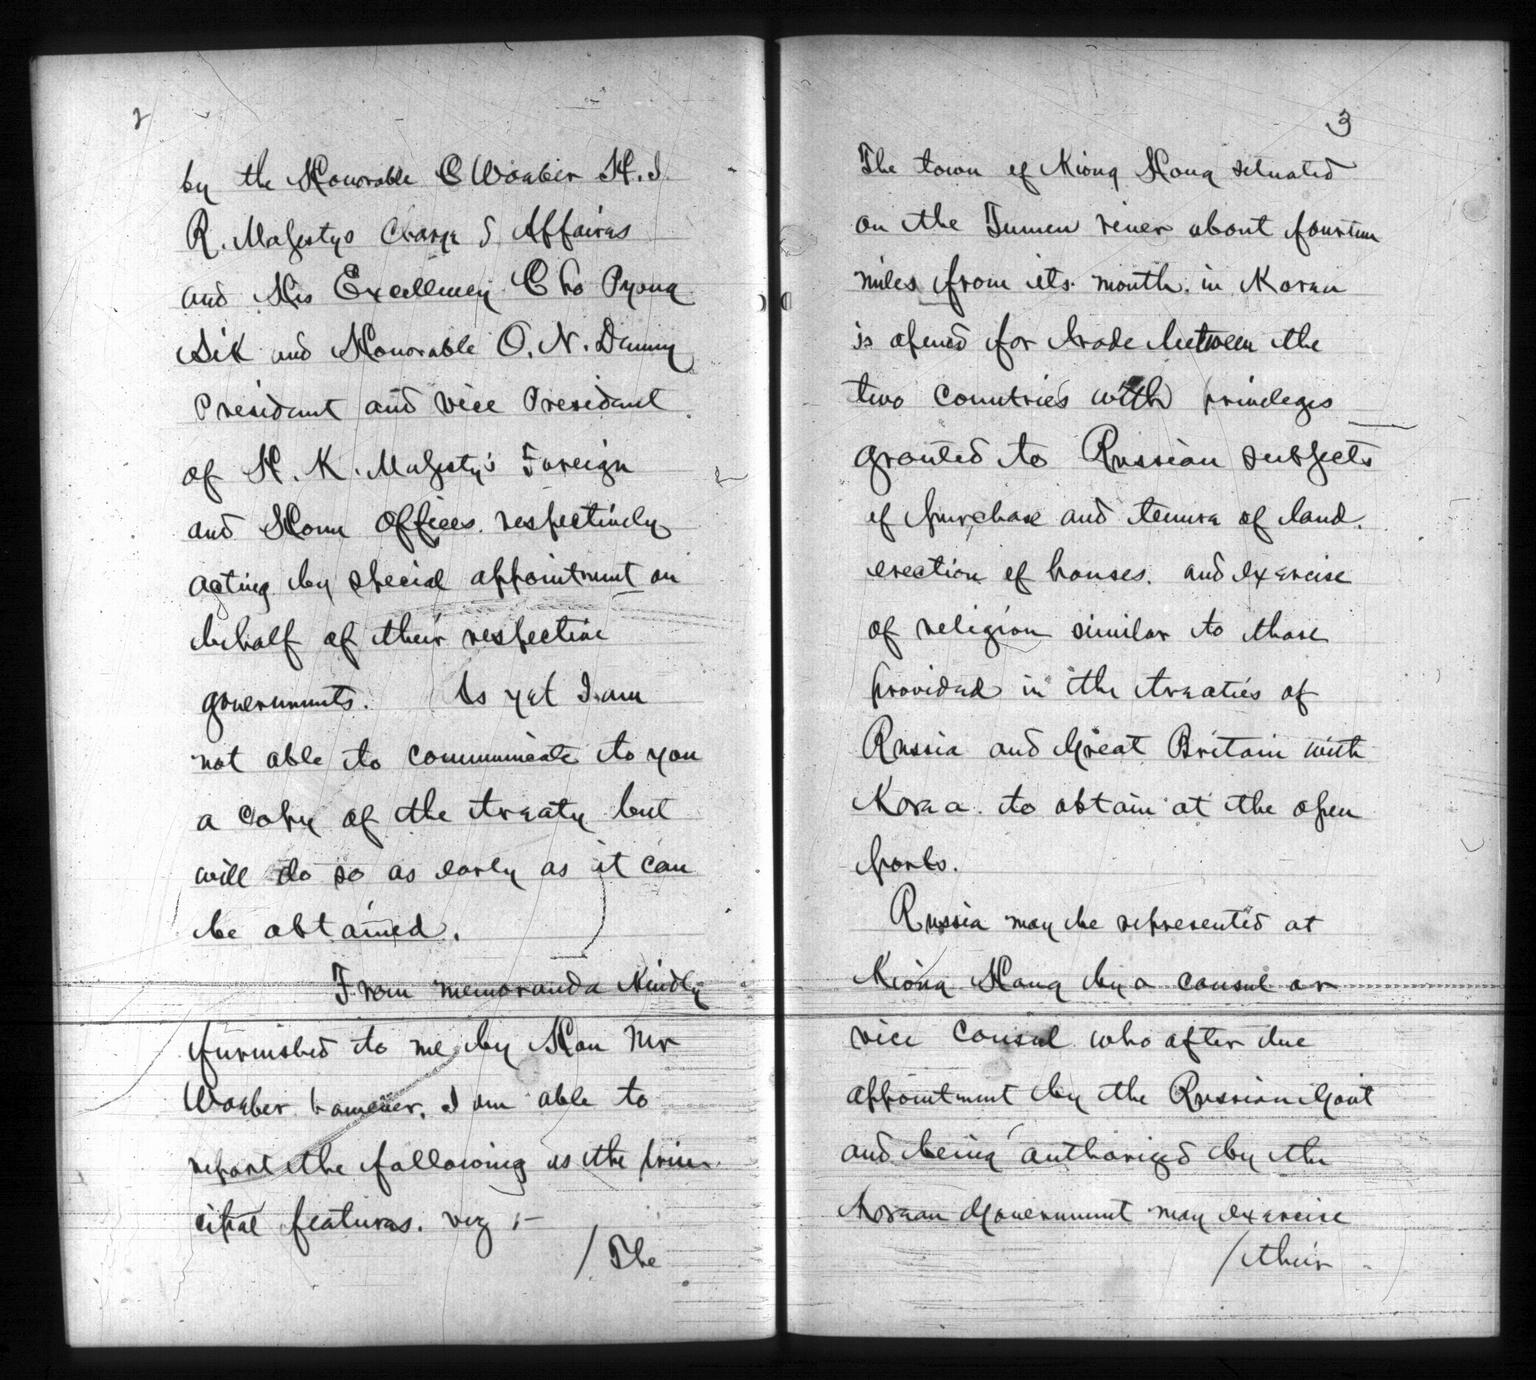 2
by the Honorable C Waeber H. I.
R. Majestys Charge d Affaires
and His Excellency Cho Pyong
Sik and Honorable O. N. Denny
President and vice President
of H. K. Majesty's Foreign
and Home Offices. respectively
acting by special appointment on
behalf of their respective
governments. As yet I am
not able to communicate to you
a copy of the treaty but
will do so as early as it can
be obtained.
From memoranda kindly
furnished to me by Hon Mr
Waeber however, I am able to
report the following as the prin-
cipal features. viz :-
/ The
3
The town of Kiong Hong situated
on the Tumen river about fourteen
miles from its mouth. in Korea
is opened for trade between the
two countries with privileges
granted to Russian subjects
of purchase and tenure of land.
erection of houses. and exercise
of religion similar to those
provided in the treaties of
Russia and Great Britain with
Korea. to obtain at the open
ports.
Russia may be represented at
Kiong Hong by a consul or
vice Consul who after due
appointment by the Russian Govt
and being authorized by the
Korean Government may exercise
/ their